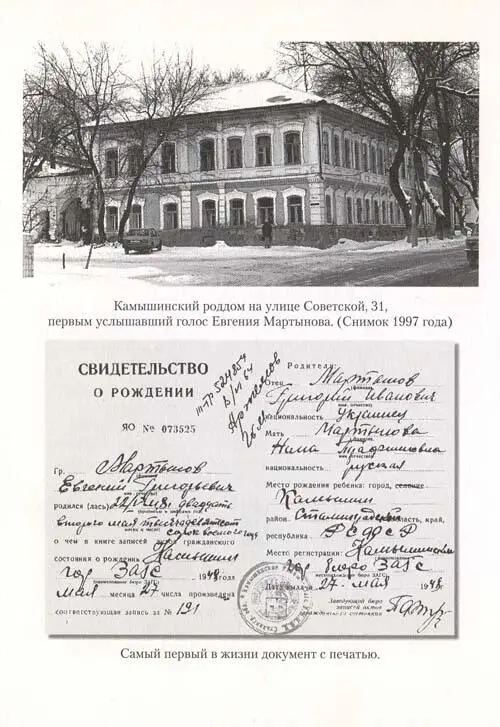 Камышинский роддом на улице Советской, 31,
первым услышавший голос Евгения Мартынова. (Снимок 1997 года)
СВИДЕТЕЛЬСТВО
О РОЖДЕНИИ
ЯО № 073525
Гр. Мартынов
Евгений Григорьевич
родился (лась) 22/V-48г двадцать
второго мая тысяча девятьсот
сорок восьмого года
о чем в книге записей актов гражданского
состояния о рождении Камышин
гор ЗАГС 1948 года
мая месяца 27 числа произведена
соответствующая запись за № 191
Родители:
Отец Мартынов
Григорий Иванович
национальность Украинец
Мать Мартынова
Нина Трофимовна
национальность русская
Место рождения ребенка: город, селение
Камышин
район Сталинградская область, край,
республика РСФСР
Место регистрации: Камышинское
гор бюро ЗАГС
Дата выдачи 27 мая 1948г.
Заведующий бюро
записей актов
гражданского состояния
Самый первый в жизни документ с печатью.